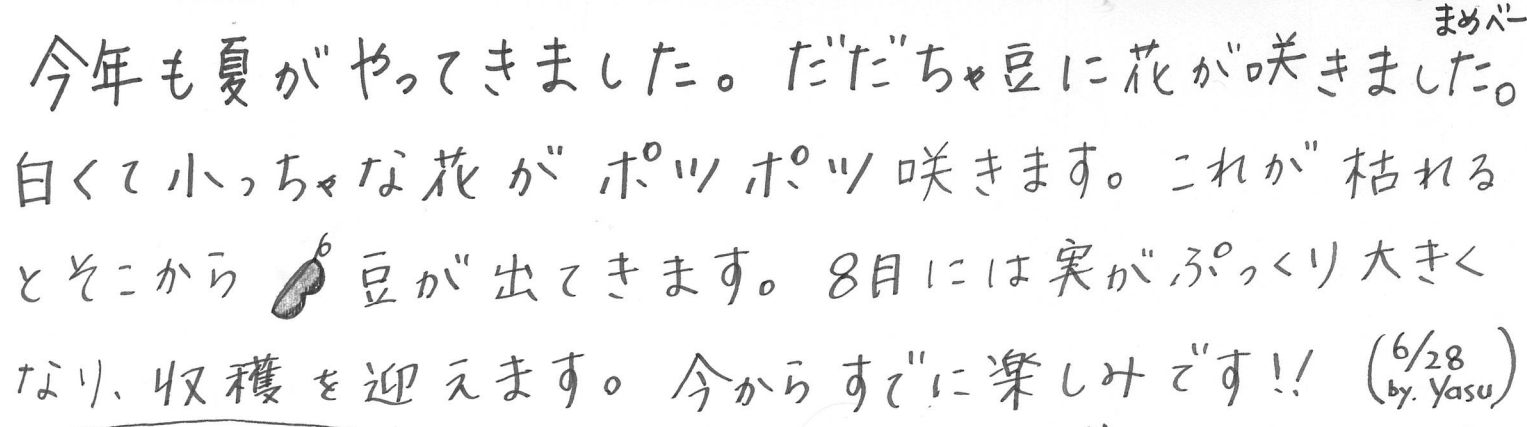 まめべー
今年も夏がやってきました。だだちゃ豆に花が咲きました。
白くて小っちゃな花がポツポツ咲きます。これが枯れる
とそこから豆が出てきます。8月には実がぷっくり大きく
なり、収穫を迎えます。今からすでに楽しみです!! (6/28
by. Yasu)